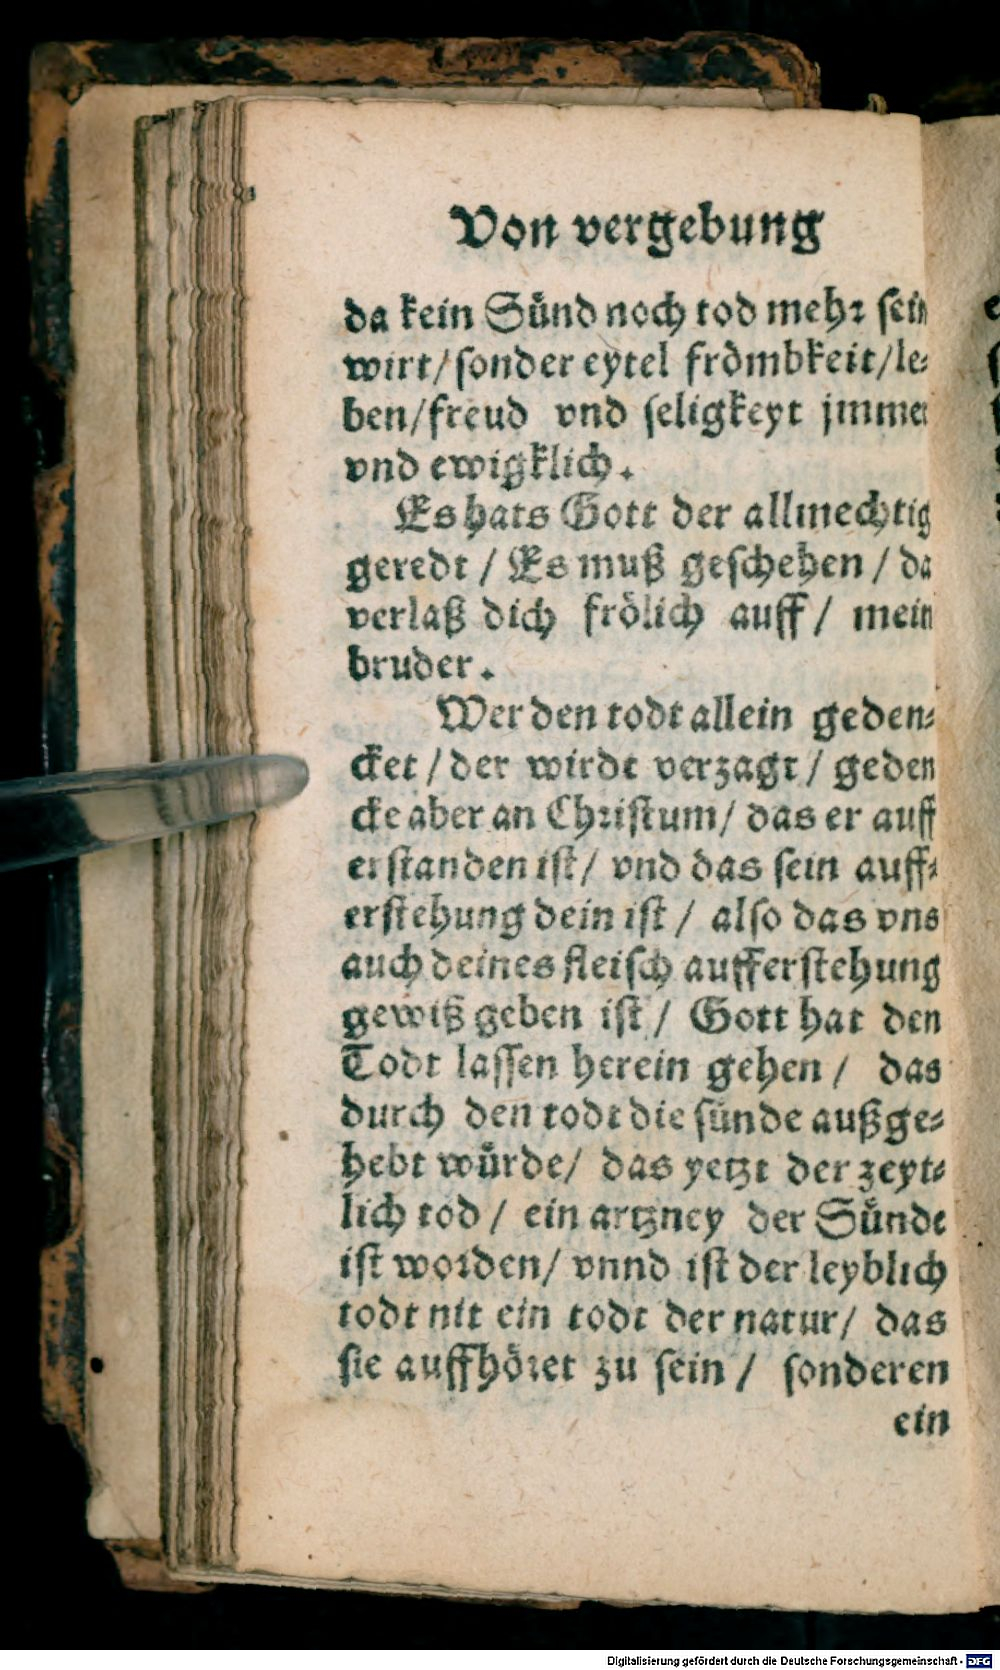 Von vergebung
da kein Sünd noch tod mehr sein
wirt/ sonder eytel frömbkeit/le⸗
ben/freud vnd seligkeyt jmmer
vnd ewigklich.
Es hats Gott der allmechtig
geredt / Es muß geschehen / da
verlaß dich frölich auff / mein
bruder.
Wer den todt allein geden⸗
cket / der wirdt verzagt / geden
cke aber an Christum/ das er auff
erstanden ist/ vnd das sein auff⸗
erstehung dein ist / also das vns
auch deines fleisch aufferstehung
gewiß geben ist / Gott hat den
Todt lassen herein gehen / das
durch den todt die sünde außge⸗
hebt würde/ das yetzt der zeyt⸗
lich tod / ein artzney der Sünde
ist worden/ vnnd ist der leyblich
todt nit ein todt der natur/ das
sie auffhöret zu sein / sonderen
ein
Digitalisierung gefördert durch die Deutsche Forschungsgemeinschaft - DFG